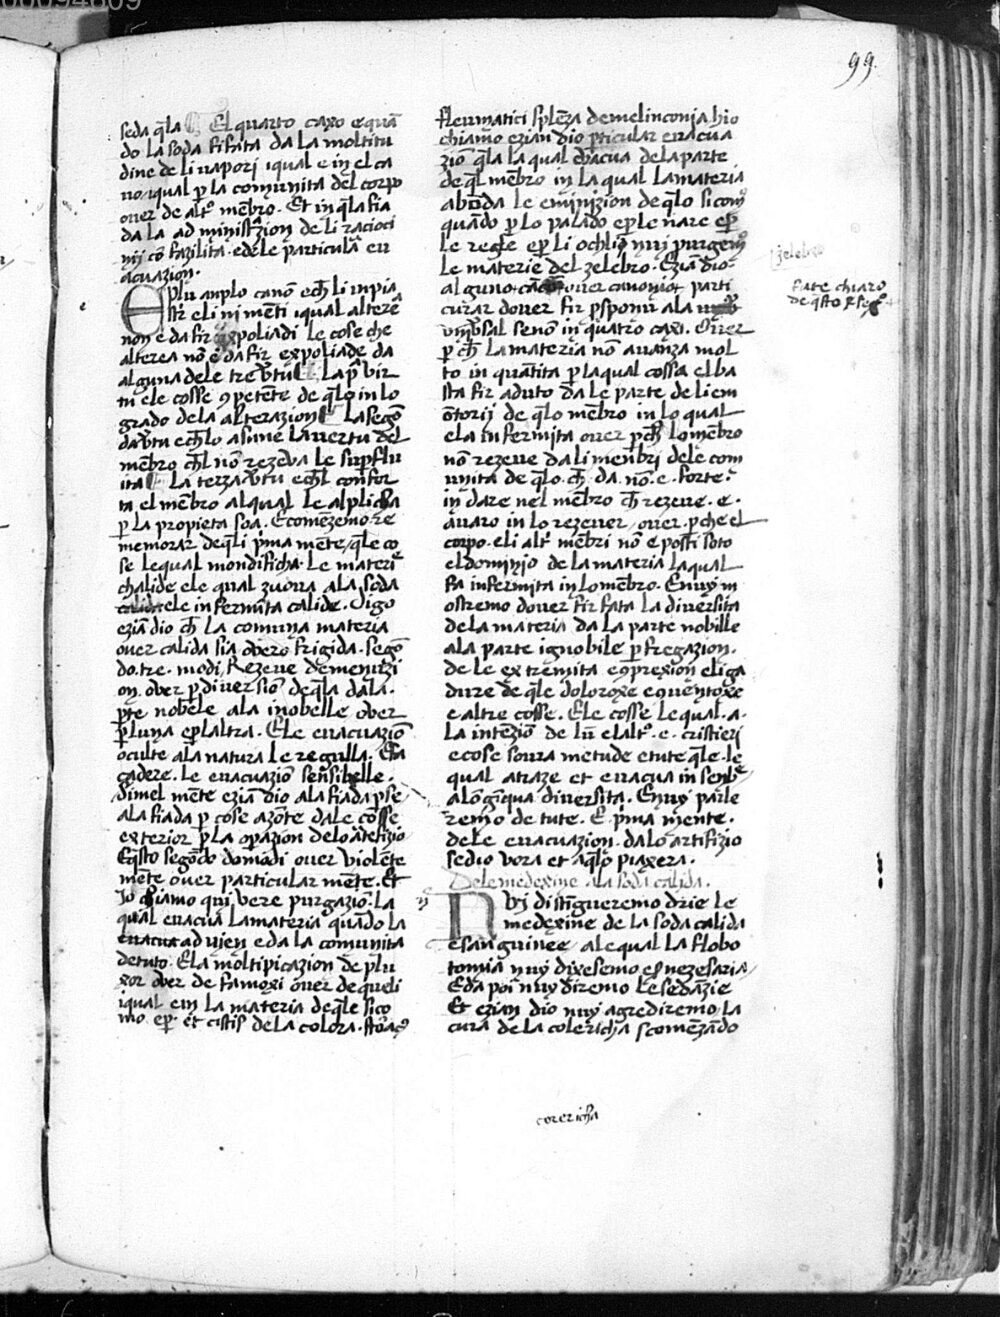 99.
seda q̄la ¶ El quarto caxo e quā
do la soda fi fata da la moltitu
dine de li uaporj i qual e in el ca
uo i qual p̄ la comunita del corpo
ouer de altr̄ mēbro. Et in q̄la fia
da la administr̄azion de li racioci
nij cō fazilita e de le particularj eu
acuazion.
E plu anplo canō ech̄ li inpia
str̄ e li nimenti i qual altere
non e da fir expoliadi le cose che
alterea nō e da fir expoliade da
alguna de le tre v̄tu ¶ La p̄a vir
tu e le cosse 9petēte de q̄lo in lo
grado de la alterazion ¶ La segō
da v̄tu ech̄lo asune la uertu del
mēbro ch̄l nō rezeua le sup̄flu
ita ¶ La terza v̄tu ech̄l confor
ta el mēbro al qual le alplicha
p̄ la propieta soa. E comēzemo re
memorar de q̄li p̄ma mēte q̄le co
se le qual mondificha le materi
chalide e le qual zuoua ala soda
calida e le infermita calide. Digo
ezian dio ch̄ la comuna materia
ouer calida sia overo frigida. segō
do. tre. modi, Rezeue demenuzi
on. ouer p̄ diuersiō de q̄la dala.
p̄te nobele ala inobelle ouer
p̄ luna ep̄ laltra. E le euacuaziō
oculte ala natura le regulla. E fa
cadere. le euacuaziō sensibelle.
Simel mēte ezian dio ala fiada p̄ se
ala fiada p̄ cose azōte da le cosse
exterior p̄ la op̄azion de lo artefizio
E q̄sto segōdo do modi ouer violēte
mēte ouer particular mēte. Et
Io chiamo qui vere purgaziō. La
qual euacua la materia quādo la
euacua ad ujen e da la comunita
de tuto. E la moltipicazion de plu
xor ouer de famoxi ouer de queli
i qual e in la materia de q̄le sico
mo ep̄. et cistis de la colora. sto̅a9
fleumatici splēza de melinconia hio
chiamo ezian dio p̄ticular euacua
ziō q̄la la qual euacua de la parte
de q̄l mēbro in la qual la materia
abūda le eminizion de q̄lo sicom̄
quādo p̄ lo palado ep̄ le nare ep̄
le regle ep̄ li ochlij nuj purgem̄
le materie del zelebro. Eziā dio
alguno ouer canonio parti
curar douer fir p̄sponu ala
vniv̄sal senō in quatro caxi. Ouer
p̄ ch̄ la materia nō auanza mol
to in quātita p̄ la qual cossa el ba
sta fir aduto da le parte de li em
ōtorij de q̄lo mēbro in lo qual
e la infermita ouer p̄ ch̄ lo mēbro
nō rezeue da li menbrj de le com
unita de q̄lo. ch̄. da. nō. e. forte.
in dare nel mēbro ch̄ rezeue. e.
auaro in lo rezeuer, ouer. p̄che el
corpo. e li altr̄ mēbri nō e posti soto
el dominjo de la materia la qual
fa infermita in lo mēbro. E nuy m
ostremo douer fir fata la diuersita
de la materia da la parte nobille
ala parte ignobile p̄ fregazion.
de le extremita e 9prexion e liga
dure de q̄le doloroxe e quentoxe
e altre cosse. E le cosse le qual. a.
la intēziō de lū e laltr̄. e. cristieri
e cose soura metude e tute q̄le. le
qual atraze et euacua in senbl̄
a lōginqua diuersita. E nuy parle
remo de tute. E p̄ma mente.
de le euacuazion. da lo artifizio
sedio vora et aq̄lo piaxera.
De le medexine. Ala soda calida.
N vj distīgueremo drie le
medexine de la soda calida
e sanguinee. ale qual la flobo
tomia nuy dixesemo es nezesaria
E da poi nuy diremo le sedazie
Et ezian dio nuy agrediremo la
cura de la colericha scomēzādo
zelebro
fate chiaro
de q̄sto
corericha